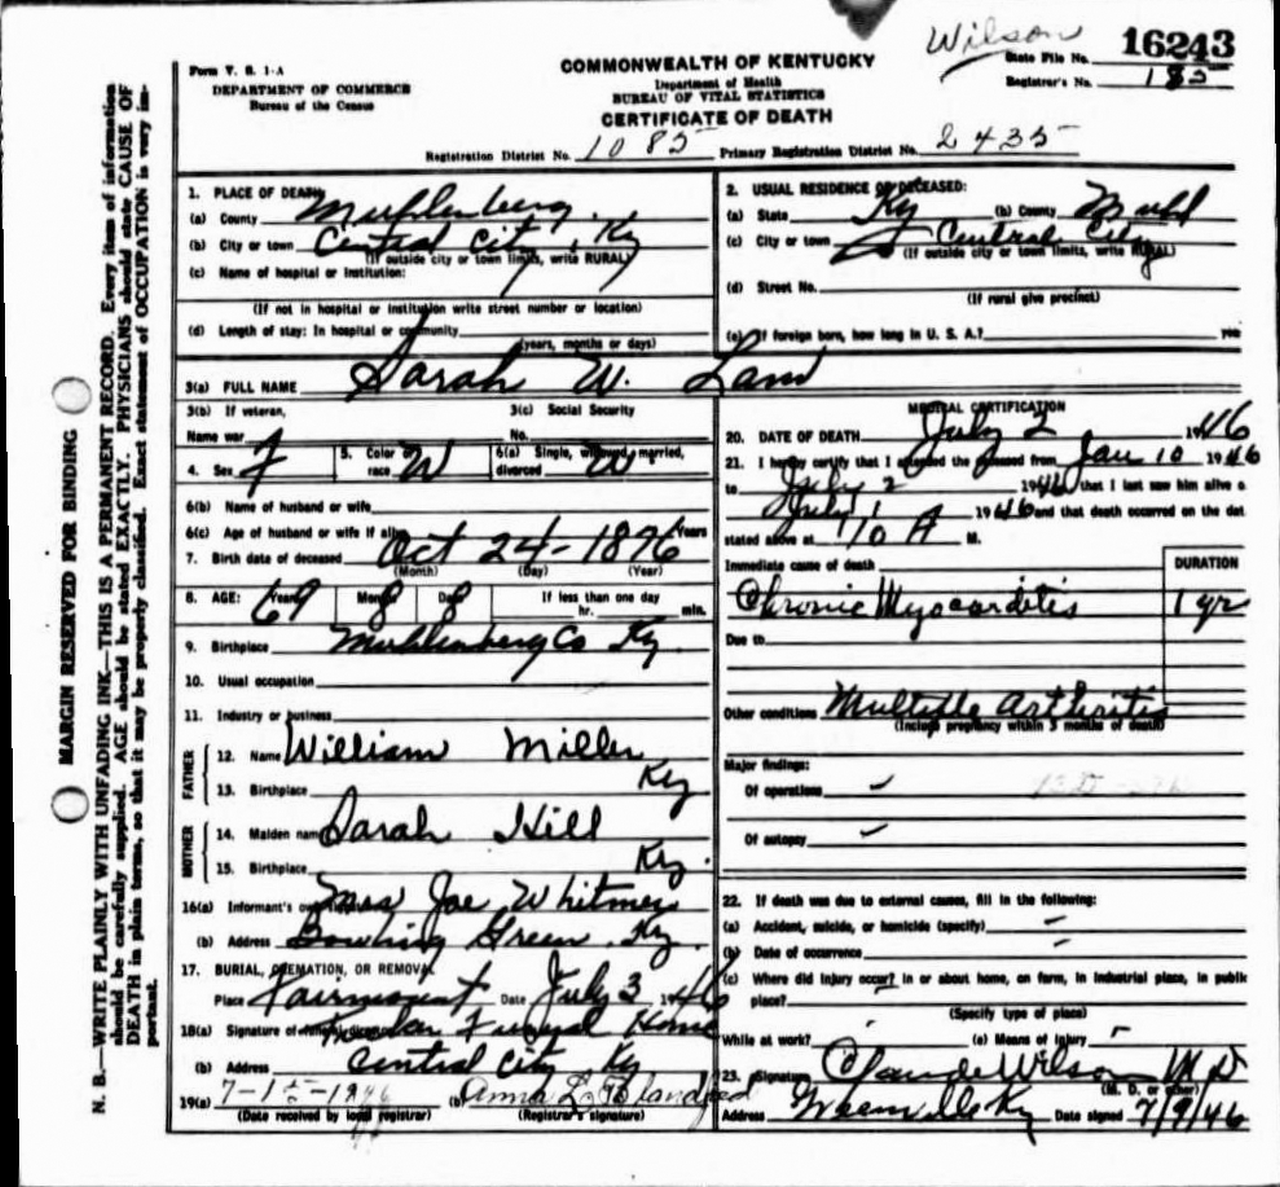 Wilson
16243
State File No.
Registrar's No. 185
Form V. S. 1-A
DEPARTMENT OF COMMERCE
Bureau of the Census
COMMONWEALTH OF KENTUCKY
Department of Health
BUREAU OF VITAL STATISTICS
CERTIFICATE OF DEATH
Registration District No. 1085 Primary Registration District No. 2435
MARGIN RESERVED FOR BINDING
N. B.—WRITE PLAINLY WITH UNFADING INK—THIS IS A PERMANENT RECORD. Every item of information
should be carefully supplied. AGE should be stated EXACTLY. PHYSICIANS should state CAUSE OF
DEATH in plain terms, so that it may be properly classified. Exact statement of OCCUPATION is very im-
portant.
1. PLACE OF DEATH
(a) County Muhlenberg.
(b) City or town Central City, Ky
(If outside city or town limits, write RURAL)
(c) Name of hospital or institution:
(If not in hospital or institution write street number or location)
(d) Length of stay: In hospital or community
(years, months or days)
2. USUAL RESIDENCE OF DECEASED:
(a) State Ky (b) County Muhl
(c) City or town Central City
(If outside city or town limits, write RURAL)
(d) Street No.
(If rural give precinct)
(e) If foreign born, how long in U. S. A.?
3(a) FULL NAME Sarah W. Lam
3(b) If veteran,
Name war
3(c) Social Security
No.
4. Sex F 5. Color or race W 6(a) Single, widowed, married, divorced W
6(b) Name of husband or wife
6(c) Age of husband or wife if alive Years
7. Birth date of deceased Oct 24-1876
(Month) (Day) (Year)
8. AGE: Years 69 Months 8 Days 8 If less than one day
hr. min.
9. Birthplace Muhlenberg Co Ky.
10. Usual occupation
11. Industry or business
FATHER
12. Name William Miller
13. Birthplace Ky
MOTHER
14. Maiden name Sarah Hill
15. Birthplace Ky.
16(a) Informant's own Mrs Joe Whitmer
(b) Address Bowling Green, Ky.
17. BURIAL, CREMATION, OR REMOVAL
Place Fairmount Date July 3 1946
18(a) Signature of funeral director Tucker Funeral Home
(b) Address Central City Ky
19(a) 7-15-1946 (b) Anna L. Blandford
(Date received by local registrar) (Registrar's signature)
MEDICAL CERTIFICATION
20. DATE OF DEATH July 2 1946
21. I hereby certify that I attended the deceased from Jan 10 1946
to July 2 1946 that I last saw him alive o
July 1 1946 and that death occurred on the dat
stated above at 10 A M.
Immediate cause of death
DURATION
Chronic Myocarditis 1 yr
Due to
Other conditions Multiple arthritis
(Include pregnancy within 3 months of death)
Major findings:
Of operations
Of autopsy
22. If death was due to external causes, fill in the following:
(a) Accident, suicide, or homicide (specify)
(b) Date of occurrence
(c) Where did injury occur? In or about home, on farm, in industrial place, in public
place?
(Specify type of place)
While at work? (e) Means of injury
23. Signature Claude Wilson M D
(M. D. or other)
Address Greenville Ky Date signed 7/9/46